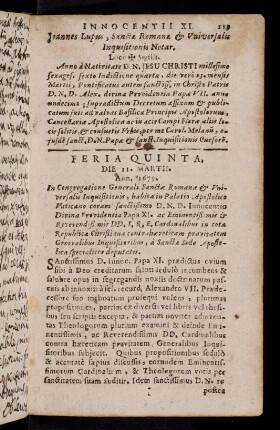 INNOCENTII XI.
Joannes Lupus, Sanctæ Romanæ & Vniversalis
Inquisitionis Notar.
Loco ✠ sigilli.
Anno à Nativitate D.N. JESU CHRISTI millesimo
sexages. sexto Indictione quarta, die verò
Martii, Pontificatus autem sanctiss. in Christo Patris
D. N. D. Alex. divina Providentia Papæ VII. anno
undecimo, supradictum Decretum affixum & publi-
catum fuit ad valvas Basilicæ Principis Apostolorum,
Cancellariæ Apostolicæ ac in acie Campi Floræ aliis lo-
cis solitis & consuetis Vrbis, per me Carol.
ejusdē sanct. D.N. Papæ & sanct. Inquisitionis Cursorē.
FERIA QUINTA,
DIE MARTII.
Ann. 1679.
In Congregatione Generali Sanctæ Romanæ & Vni-
versalis Inquisitionis, habita in Palatio Apostolico
Vaticano coram sanctissimo D. N. D. Innocentio
Divina Providentia Papa XI. ac Eminentiss. mis &
Reverendiss. mis DD. S. R. E. Cardinalibus in tota
Republica Christiana contra hæreticam pravitatem
Generalibus Inquisitoribus, à Sanctâ Sede Aposto-
lica specialiter deputatis.
SAnctissimus D. Innoc. Papa XI. prædictus ovium
sibi à Deo creditarum saluti sedulò incumbens &
salubre opus in segregandis noxiis doctrinarum pas-
cuis ab innoxiis à fel. record. Alexandro VII. Præde-
cessore suo inchoatum prosequi volens, plurimas
propositiones, partim ex diversis vel libris vel thesi-
bus seu scriptis excerptas, & partim noviter adinven-
tas Theologorum plurium examini & deinde Emi-
nentissimis, ac Reverendissimis DD. Cardinalibus
contra hæreticam pravitatem, Generalibus Inqui-
sitoribus subjecit. Quibus propositionibus sedulò
& accuratè sæpius discussis, eorumdem Eminentis-
simorum Cardinalium, & Theologorum votis per
sanctitatem suam auditis, Idem sanctissimus D. N. re
postea